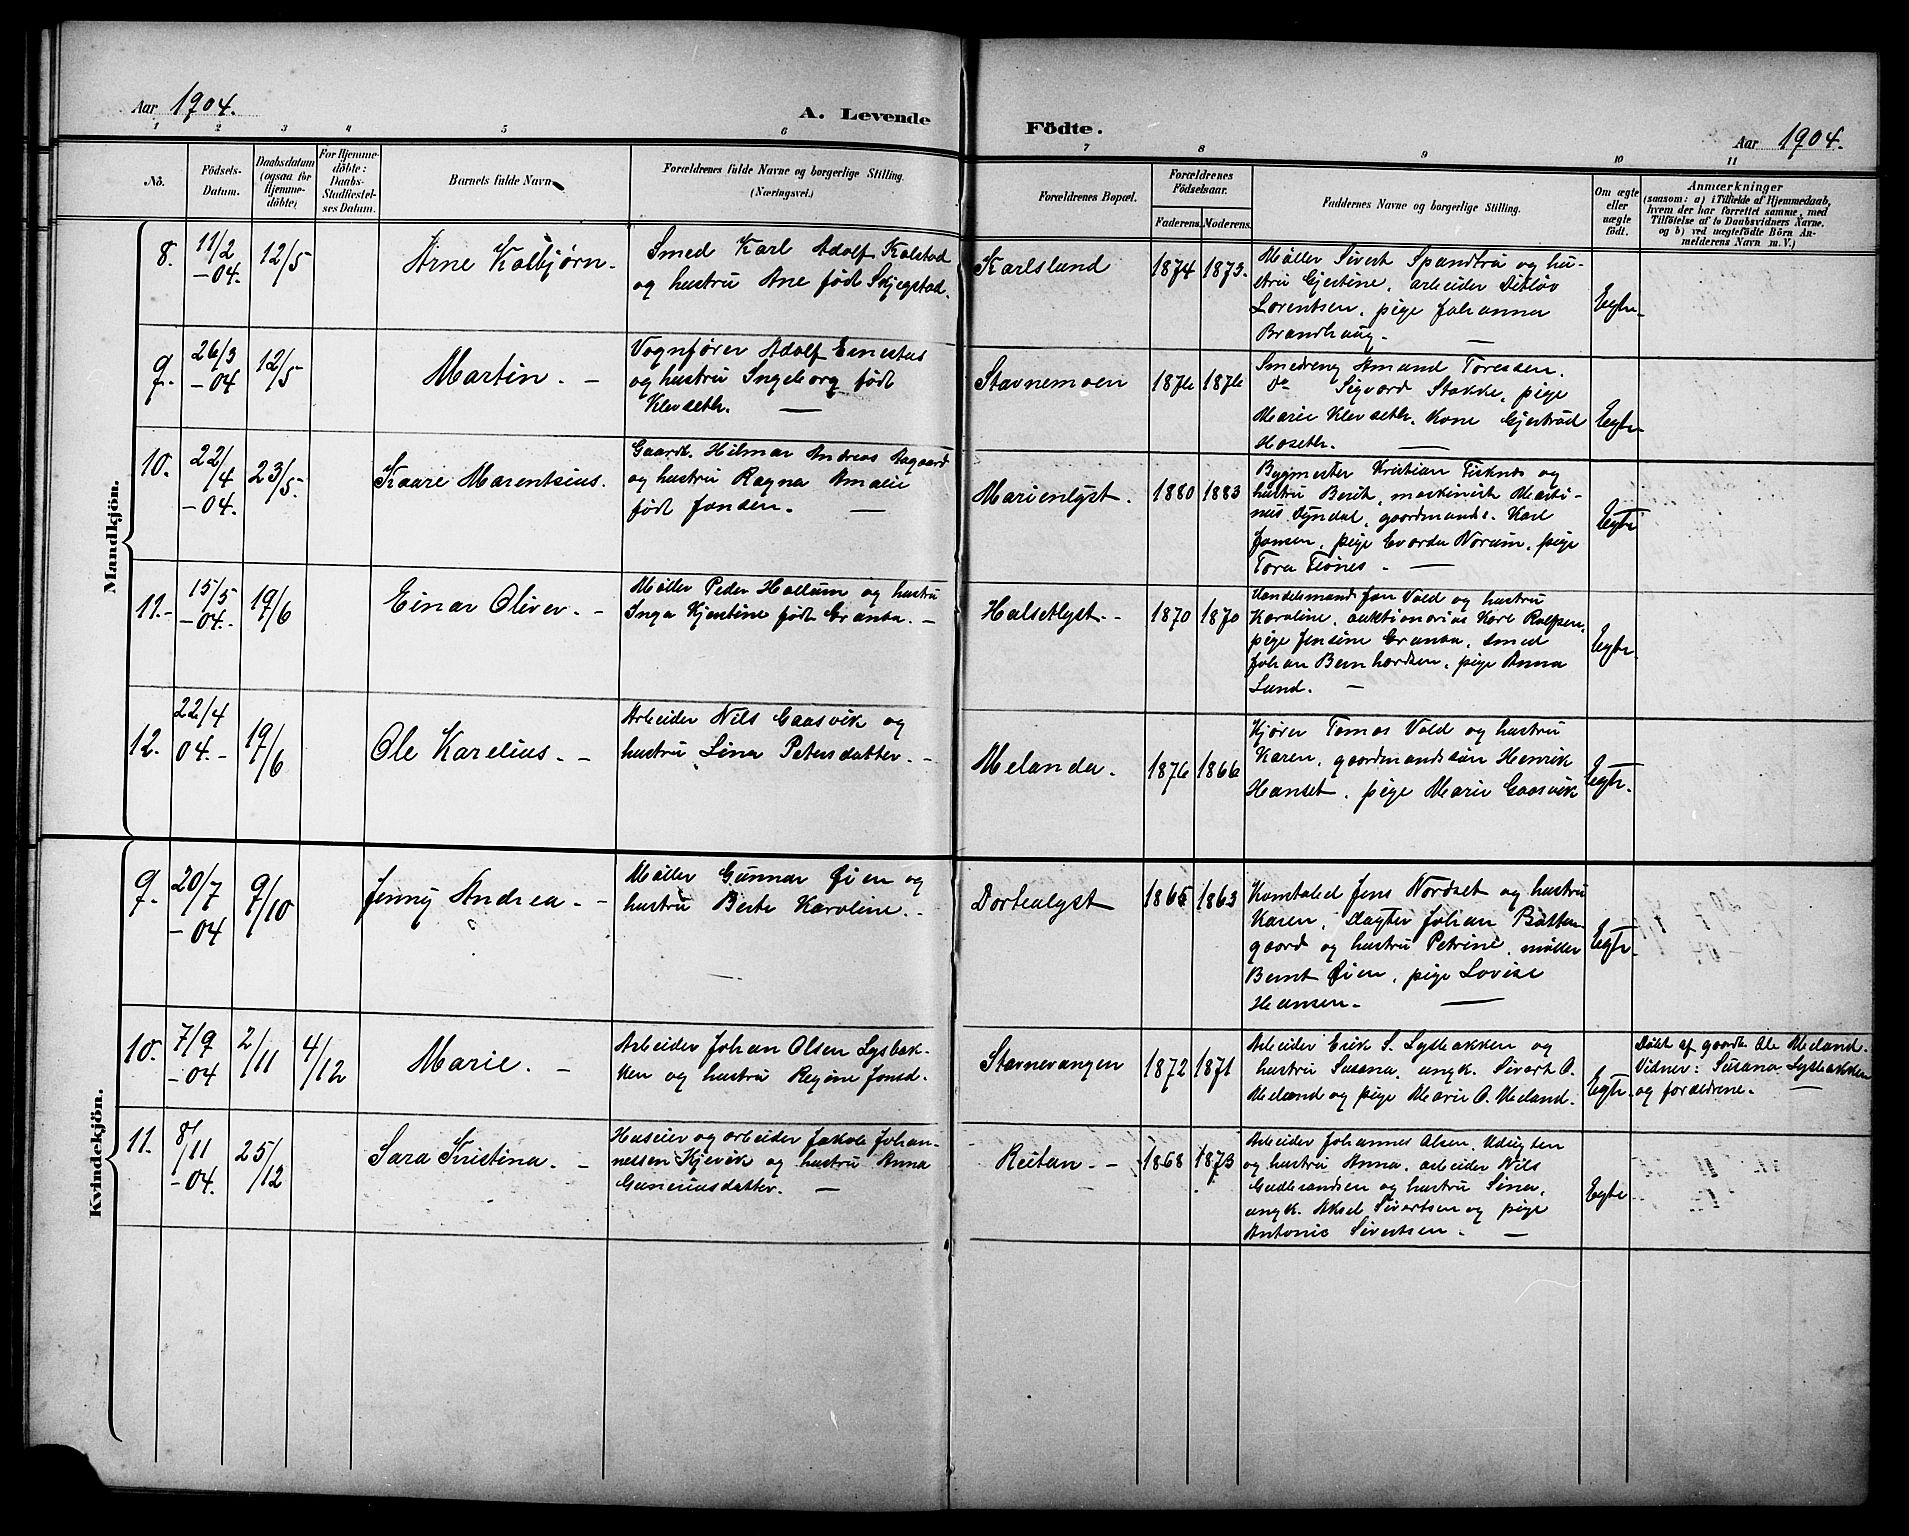 Aar 1904.
A. Levende Födte.
Aar 1904.
1 2 3 4 5 6 7 8 9 10 11
No.
Födsels-
Datum.
Daabsdatum
(ogsaa for
Hjemme-
döbte)
For Hjemme-
döbte:
Daabs-
Stadfæstel-
ses Datum.
Barnets fulde Navn
Forældrenes fulde Navne og borgerlige Stilling.
(Næringsvei.)
Forældrenes Bopæl.
Forældrenes
Födselsaar.
Faderens. Moderens.
Faddernes Navne og borgerlige Stilling.
Om ægte
eller
uægte
födt.
Anmærkninger
(saasom: a) i Tilfælde af Hjemmedaab,
hvem der har forrettet samme, med
Tilföielse af to Daabsvidners Navne.
og b) ved uægtefödte Börn An-
melderens Navn m.V.)
Mandkjön.
8.
11/2
-04.
12/5
Arne Kolbjørn.
Smed Karl Adolf Kolstad
og hustru Ane født Skjegstad.
Karlslund
1874
1873.
Møller Sivert Spandtru og hu-
stru Gjertine, arbeider Ditløv
Lorentsen, pige Johanna
Brandhaug. —
Egte
9.
26/3
-04
12/5
Martin. —
Vognfører Adolf Ernestus
og hustru Ingeborg født
Klevseth. —
Stavnemoen
1876
1876
Smedreng Amund Toressen.
Do Sigvard Stokke, pige
Marie Klevseth. Kone Gjertrud
Moseth. —
Egte
10.
22/4
-04.
23/5.
Kaare Marentsius.
Gaardb. Hilmar Andreas Aagaard
og hustru Ragna Amalie
født Janden. —
Marienlyst.
1880
1883
Bygmester Kristian Fisknes og
hustru Berit, maskinist Marti-
nus Dyndal, gaardmands. Karl
Jansen, pige Evarda Norum, pige
Tora Fiones. —
Egte
11.
15/5
-04.
19/6
Einar Oliver. —
Møller Peder Hallum og hustru
Inga Kjerstine født Granaa. —
Halsetlyst. —
1870
1870
Handelsmand Jan Vold og hustru
Karoline, auktionarius Karl Rolfsen,
pige Jensine Granaa, smed
Johan Bernhardsen, pige Anna
Lund. —
Egte.
12.
22/4
04. -
19/6
Ole Karelius. —
Arbeider Nils Gaasvik og
hustru Lina Petersdatter. —
Melanda.
1876
1866
Kjører Tomas Vold og hustru
Karen, gaardmandssøn Henrik
Hanset, pige Marie Gaasvik
Egte.
Kvindekjön.
9.
20/7
-04
9/10
Jenny Andrea. —
Møller Gunnar Øien og
hustru Berte Karoline. —
Dortealyst
1865
1863
Konstabel Jens Nordset og hustru
Karen, Vagter Johan Bakken-
gaard og hustru Petrine, møller
Bernt Øien, pige Lovise
Hansen. —
Egte.
10.
7/9
-04
2/11
4/12
Marie. —
Arbeider Johan Olsen Lysbak-
ken og hustru Regine Jonsd.
Stavnevangen
1872
1871
Arbeider Erik S. Lysbakken og
hustru Susana, ungk. Sivert O.
Meland og pige Marie O. Meland.
Egte.
Døbt af gaardb. Ole Meland.
Vidner: Susana Lysbakken
og forældrene. —
11.
8/11
-04.
25/12
Sara Kristina. —
Huseier og arbeider Jakob Johan-
nessen Kjevik og hustru Anna
Guneriusdatter. —
Reitan. —
1868
1873
Arbeider Johannes Olsen, Udsigten
og hustru Anna, arbeider Nils
Gudbrandsen og hustru Sina,
ungk. Aksel Sivertsen og pige
Antonie Sivertsen. —
Egte